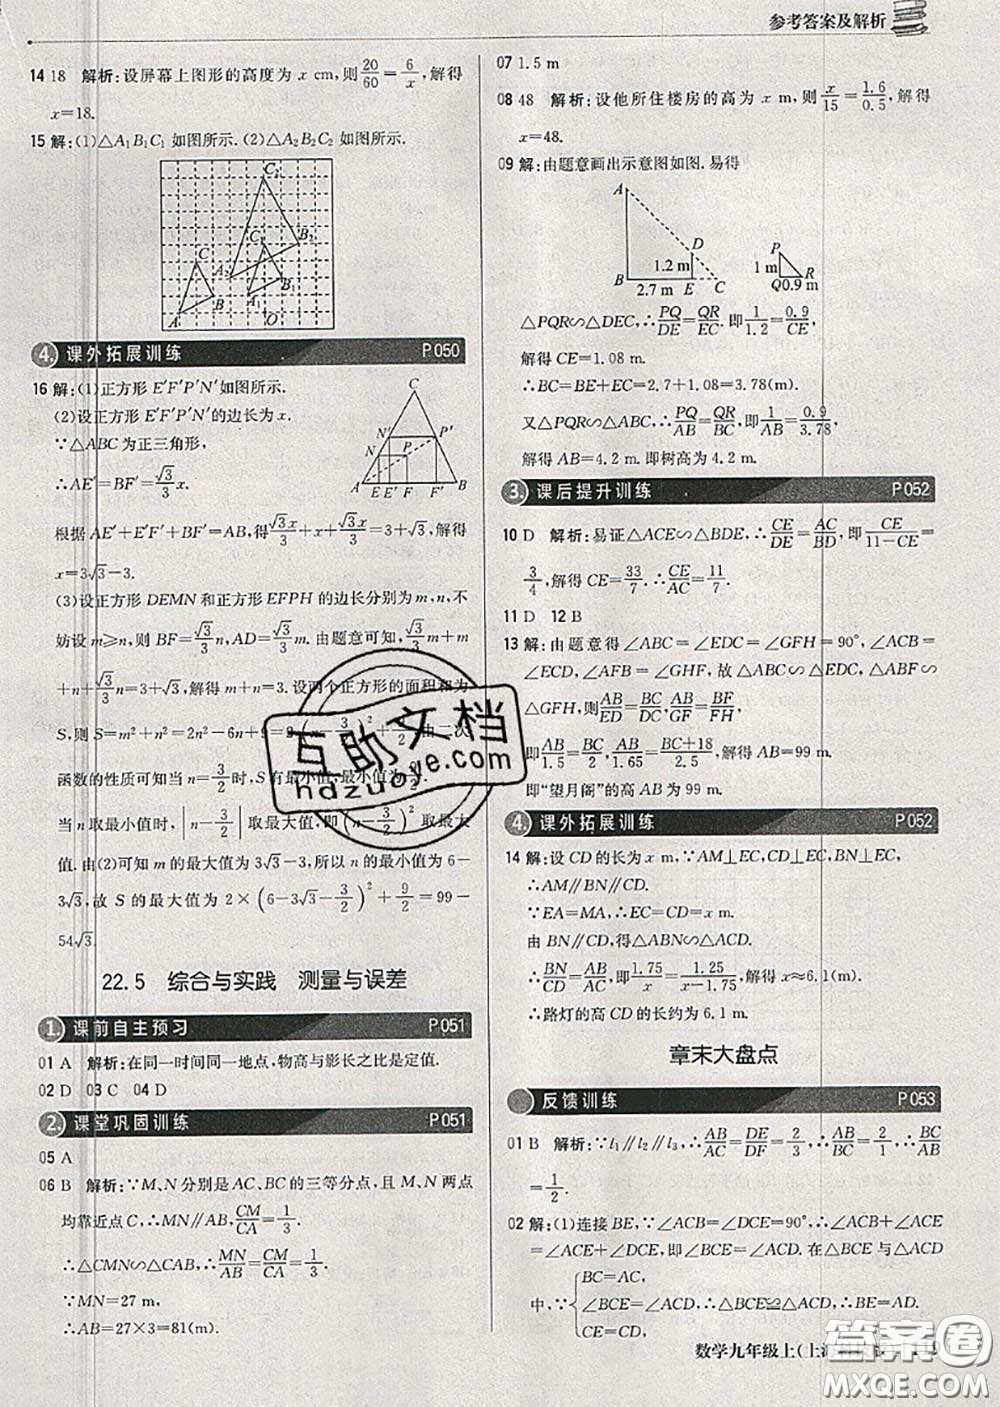 参考答案及解析
14 18 解析:设屏幕上图形的高度为 x cm,则20/60=6/x,解得
x=18.
15 解:(1)△A₁B₁C₁ 如图所示.(2)△A₂B₂C₂ 如图所示.
C₂
C₁ B₂
C A₂
B₁
A₁
B
A O
4. 课外拓展训练 P050
16 解:(1)正方形 E′F′P′N′如图所示.
(2)设正方形 E′F′P′N′的边长为 x.
∵△ABC 为正三角形,
∴AE′=BF′=√3/3 x.
C
N′ P′
N P
A E E′ F F′ B
根据 AE′+E′F′+BF′=AB,得√3x/3+x+√3x/3=3+√3,解得
x=3√3-3.
(3)设正方形 DEMN 和正方形 EFPH 的边长分别为 m,n,不
妨设 m≥n,则 BF=√3/3 n,AD=√3/3 m. 由题意可知,√3/3 m+m
+n+√3/3 n=3+√3,解得 m+n=3. 设两个正方形的面积和为
S,则 S=m²+n²=2n²-6n+9=2(n-3/2)²+9/2. 由二次
函数的性质可知当 n=3/2时,S 有最小值,最小值为9/2.
当 n 取最小值时,|n-3/2|取最大值,即(n-3/2)²取最大
值. 由(2)可知 m 的最大值为 3√3-3. 所以 n 的最小值为 6-
3√3,故 S 的最大值为 2×(6-3√3-3/2)²+9/2=99-
54√3.
22.5 综合与实践 测量与误差
1. 课前自主预习 P051
01 A 解析:在同一时间同一地点,物高与影长之比是定值.
02 D 03 C 04 D
2. 课堂巩固训练 P051
05 A
06 B 解析:∵M、N 分别是 AC、BC 的三等分点,且 M、N 两点
均靠近点 C,∴MN∥AB,CM/CA=1/3.
∴△CMN∽△CAB,∴MN/AB=CM/CA=1/3.
∵MN=27 m,
∴AB=27×3=81(m).
07 1.5 m
08 48 解析:设他所住楼房的高为 x m,则x/15=1.6/0.5,解得
x=48.
09 解:由题意画出示意图如图. 易得
A
D P
1.2 m 1 m
B 2.7 m E C Q0.9 m R
△PQR∽△DEC,∴PQ/DE=QR/EC. 即1/1.2=0.9/CE,
解得 CE=1.08 m.
∴BC=BE+EC=2.7+1.08=3.78(m).
又△PQR∽△ABC,∴PQ/AB=QR/BC,即1/AB=0.9/3.78,
解得 AB=4.2 m. 即树高为 4.2 m.
3. 课后提升训练 P052
10 D 解析:易证△ACE∽△BDE,∴CE/DE=AC/BD,即CE/11-CE=
3/4,解得 CE=33/7. ∴CE/AC=11/7.
11 D 12 B
13 解:由题意得∠ABC=∠EDC=∠GFH=90°,∠ACB=
∠ECD,∠AFB=∠GHF,故△ABC∽△EDC,△ABF∽
△GFH,则AB/ED=BC/DC,AB/GF=BF/FH,
即AB/1.5=BC/2,AB/1.65=BC+18/2.5,解得 AB=99 m.
即“望月阁”的高 AB 为 99 m.
4. 课外拓展训练 P052
14 解:设 CD 的长为 x m. ∵AM⊥EC,CD⊥EC,BN⊥EC,
∴AM∥BN∥CD.
∵EA=MA,∴EC=CD=x m.
由 BN∥CD,得△ABN∽△ACD.
∴BN/CD=AN/AD,即1.75/x=1.25/x-1.75,解得 x≈6.1(m).
∴路灯的高 CD 的长约为 6.1 m.
章末大盘点
反馈训练 P053
01 B 解析:∵l₁∥l₂∥l₃,∴AB/AC=DE/DF=2/3,∴AB/BC=2/1,∴BC/AB
=1/2.
02 解:(1)连接 BE,∵∠ACB=∠DCE=90°,∴∠ACB+∠ACE
=∠ACE+∠DCE,即∠BCE=∠ACD. 在△BCE 与△ACD
中,∵{BC=AC,
∠BCE=∠ACD,∴△BCE≌△ACD,
CE=CD
数学九年级上(上
互助文档
hdzuoye.com
答案圈
MXQE.COM